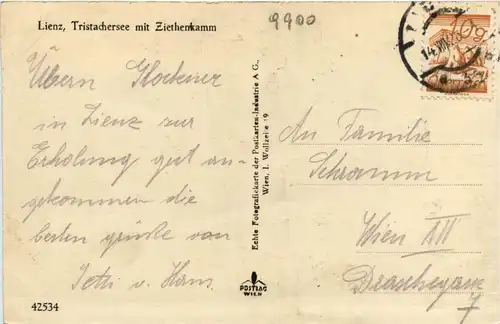 Lienz, Tristachersee mit Ziethenkamm
9900
Übern Glockner
in Lienz zur
Erholung gut an-
gekommen die
besten Grüße von
Jetti u. Hans
Echte Fotografiekarte der Postkarten-Industrie A G.,
Wien, I. Wollzeile 19
An Familie
Schramm
Wien XII
Draschegasse
7
POSTIAG
WIEN
42534